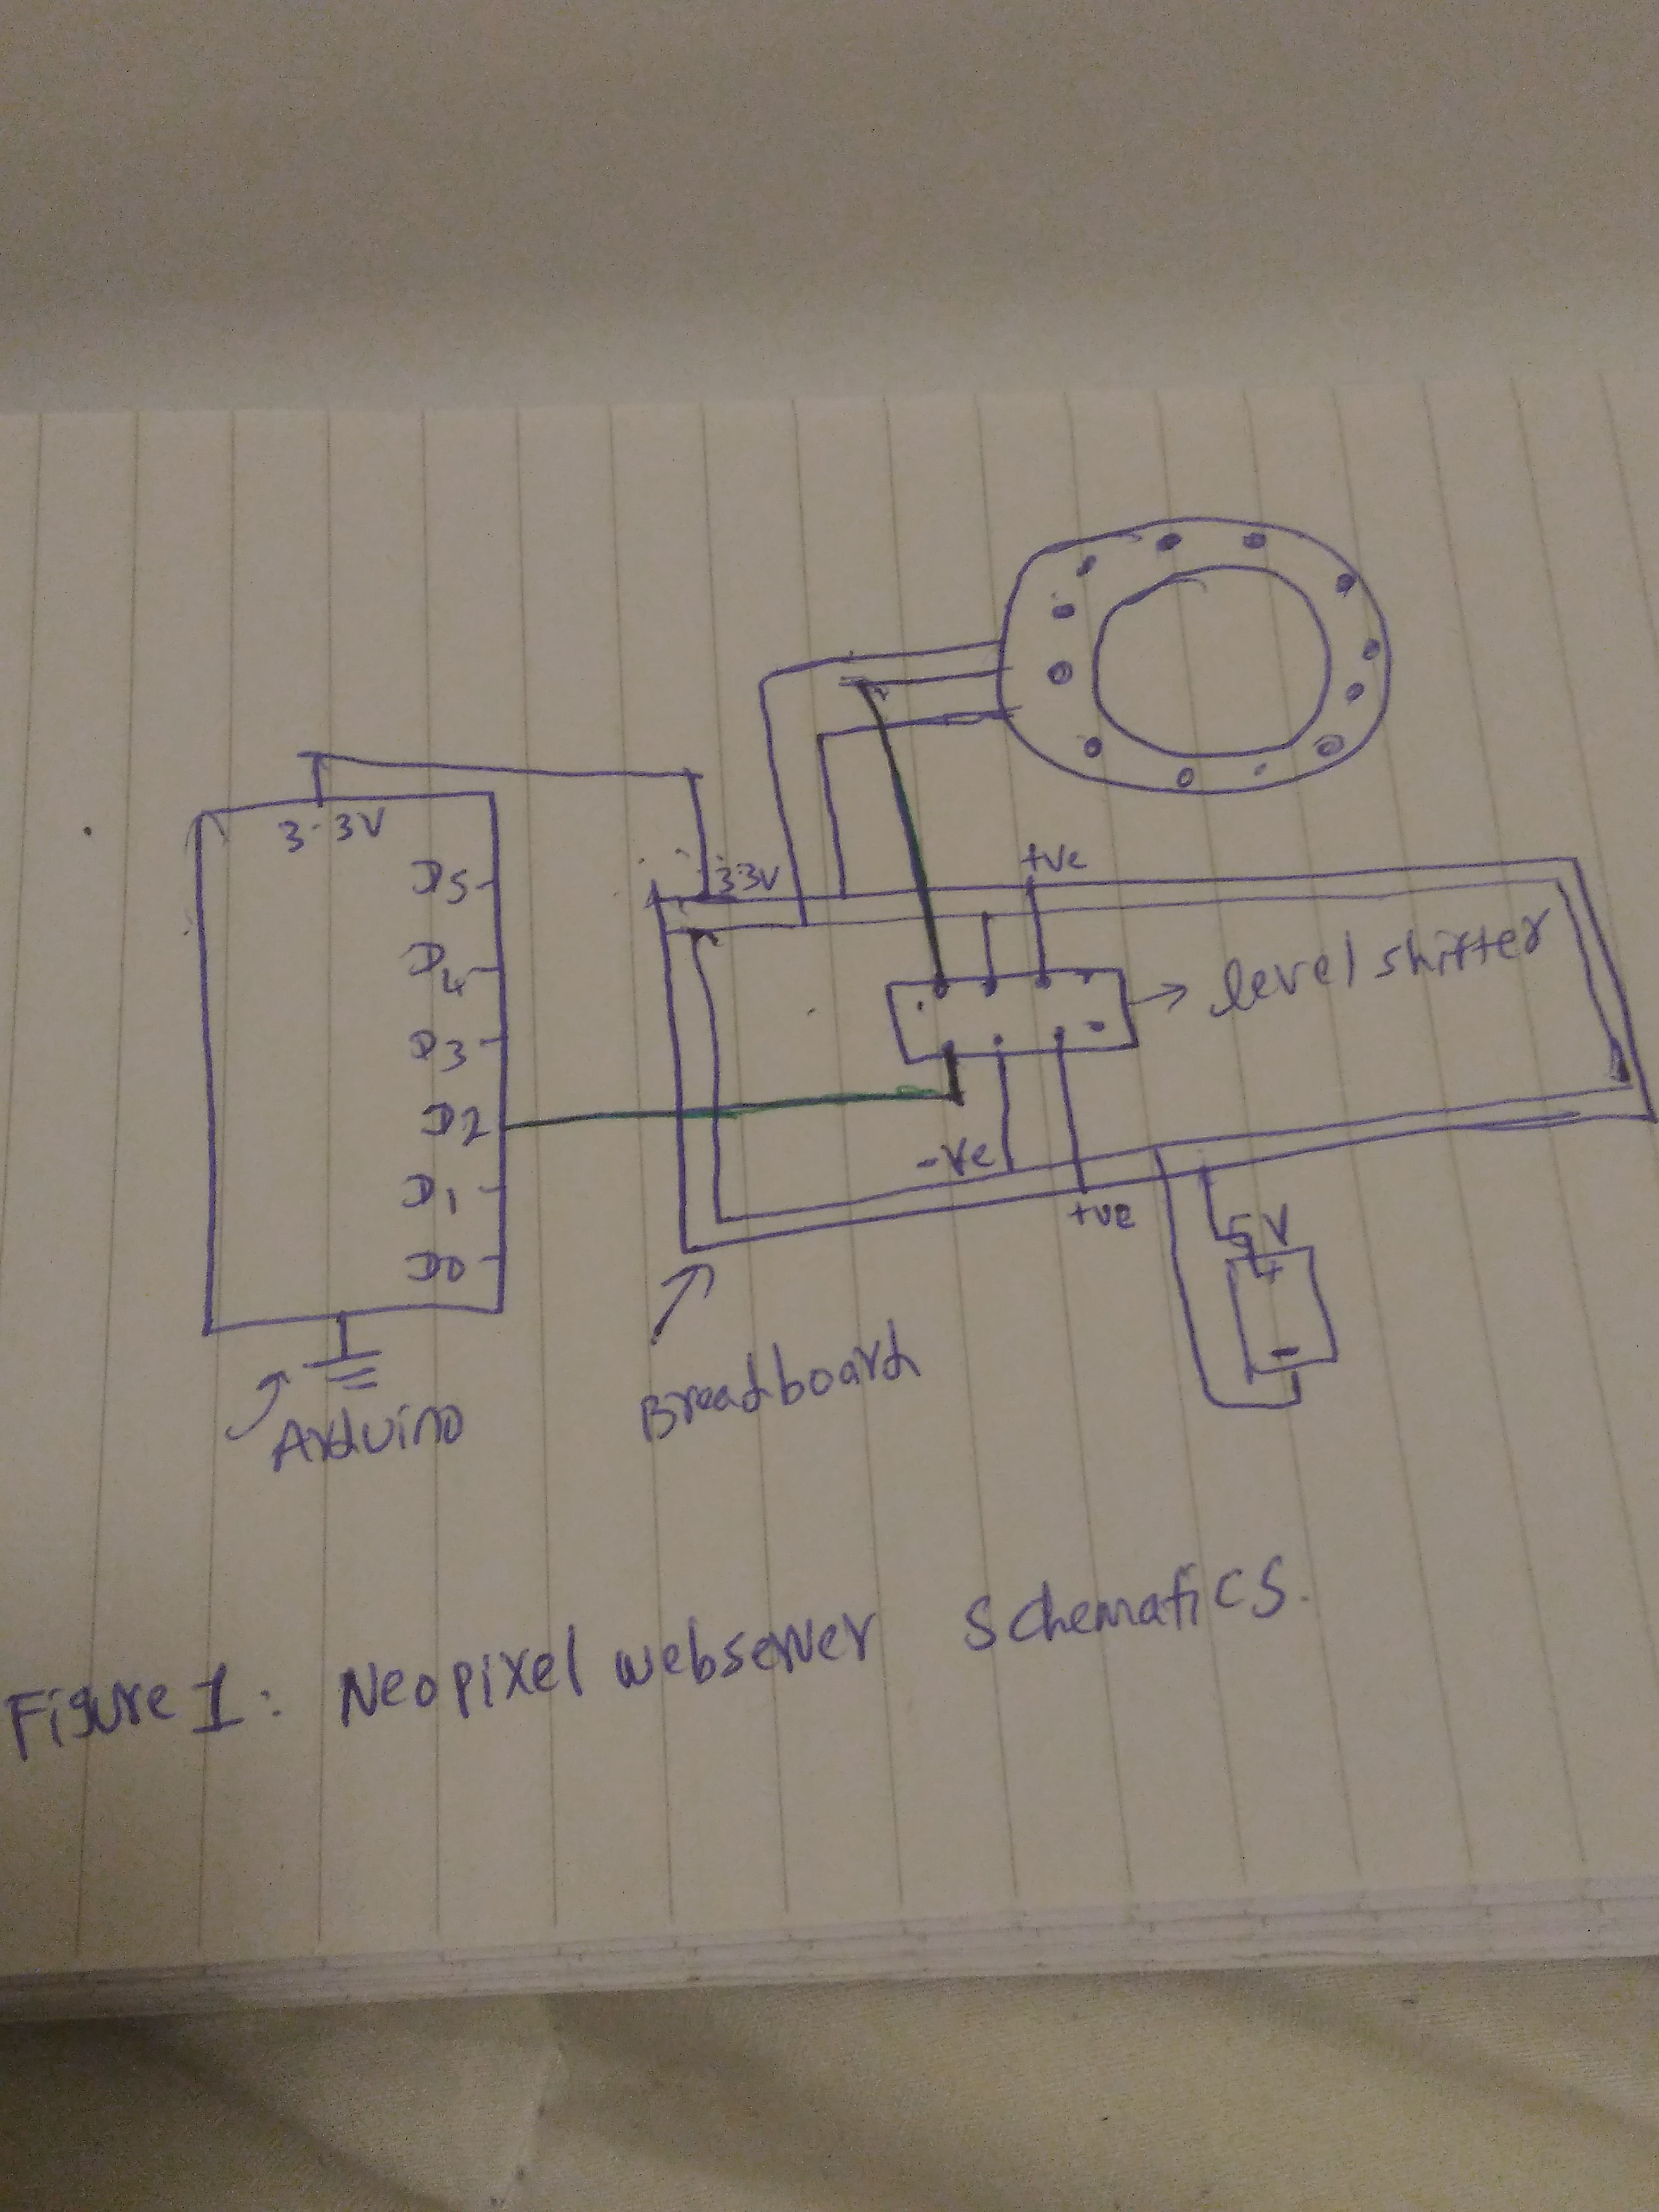 3.3V
D5
D4
D3
D2
D1
D0
Arduino
3.3V
+ve
level shifter
-ve
+ve
5V
+
-
Breadboard
Figure 1: Neopixel webserver schematics.